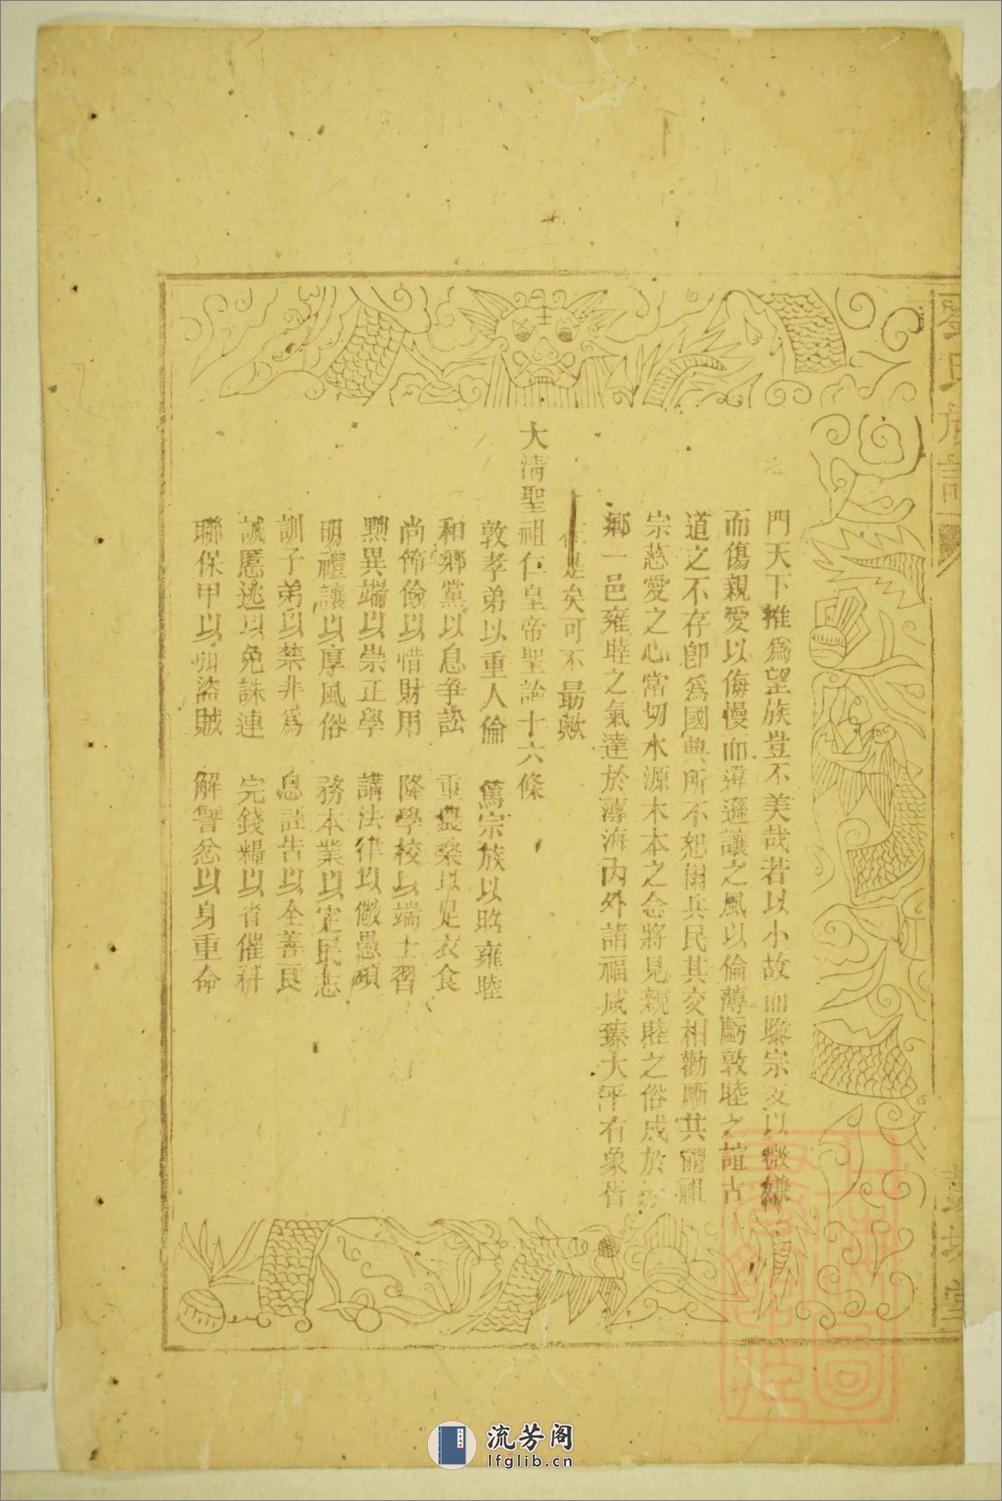 門天下推爲望族豈不美哉若以小故而隳宗支以微嫌
而傷親愛以侮慢而違遜讓之風以倫薄虧敦睦之誼古
道之不存卽爲國典所不恕爾兵民其交相勸勵其體祖
宗慈愛之心常切水源木本之念將見親睦之俗成於
鄉一邑雍睦之氣達於薄海內外諸福咸臻大平有象胥
在是矣可不勗歟
大清聖祖仁皇帝聖諭十六條
敦孝弟以重人倫 篤宗族以昭雍睦
和鄉黨以息爭訟 重農桑以足衣食
尚節儉以惜財用 隆學校以端士習
黜異端以崇正學 講法律以儆愚頑
明禮讓以厚風俗 務本業以定民志
訓子弟以禁非爲 息誣告以全善良
誡匿逃以免誅連 完錢糧以省催科
聯保甲以弭盜賊 解讐忿以身重命
流芳阁
lfglib.cn